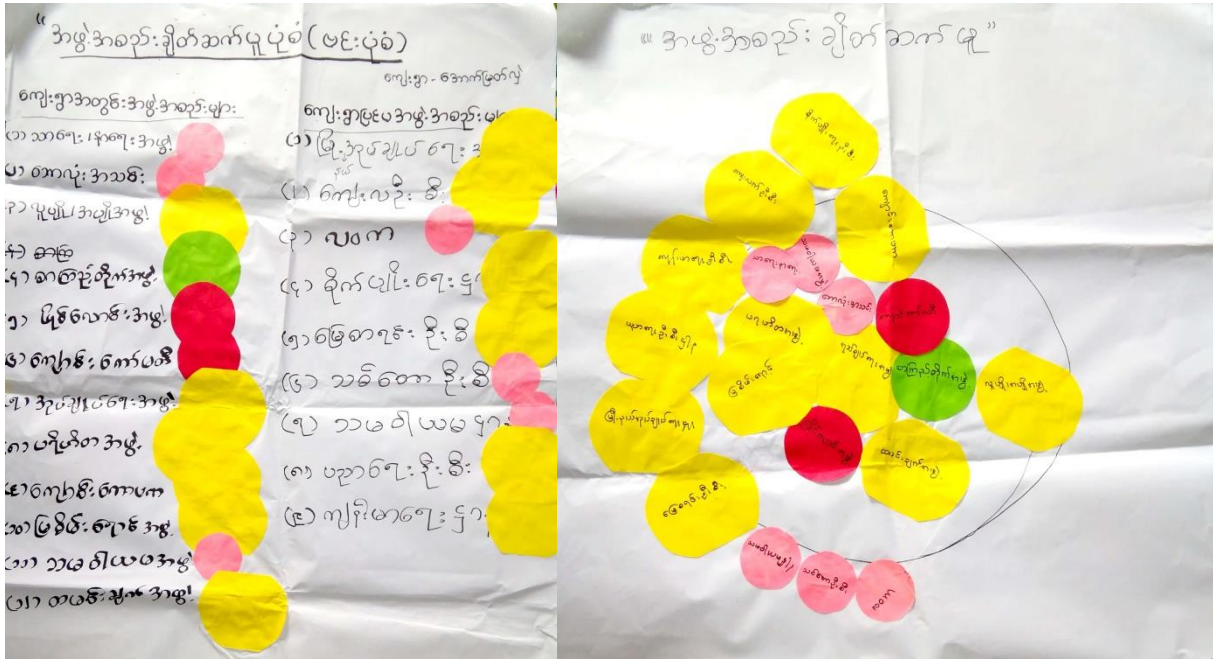 "အဖွဲ့အစည်းချိတ်ဆက်မှုပုံစံ (ဗင်းပုံစံ)
ကျေးရွာ - အောက်မြတ်လှဲ
ကျေးရွာအတွင်းအဖွဲ့အစည်းများ
(၁) သာရေး/နာရေးအဖွဲ့
(၂) ဘောလုံးအသင်း
(၃) လူပျို/အပျိုအဖွဲ့
(၄) စာကြည့်တိုက်အဖွဲ့
(၅) ဖြစ်
(၆) ကျောင်းကော်မတီ
(၇) အုပ်ချုပ်ရေးအဖွဲ့
(၈) ပရိဟိတအဖွဲ့
(၉) ကျောင်းကောပက
(၁၀) မြစိမ်းရောင်အဖွဲ့
(၁၁) သမဝါယမအဖွဲ့
(၁၂) ထမင်းချက်အဖွဲ့
ကျေးရွာပြင်ပအဖွဲ့အစည်းများ
(၁) မြို့နယ်အုပ်ချုပ်ရေး
(၂) ကျေးလက်ဦးစီး
(၃) လဝက
(၄) စိုက်ပျိုးရေးဌာ
(၅) မြေစာရင်းဦးစီ
(၆) သစ်တောဦးစီ
(၇) သမဝါယမဌာ
(၈) ပညာရေးဦးစီး
(၉) ကျန်းမာရေးဌာ
"အဖွဲ့အစည်းချိတ်ဆက်မှု"
စိုက်ပျိုးရေးဦးစီး
ကျေးလက်ဦးစီး
ကျန်းမာရေးဦးစီး
ဘောလုံးအသင်း
ပညာရေးဦးစီးဌာန
ပရဟိတအဖွဲ့
မြစိမ်းရောင်
စာကြည့်တိုက်အဖွဲ့
လူပျိုအပျိုအဖွဲ့
မြို့နယ်အုပ်ချုပ်ရေးမှူး
ထမင်းချက်အဖွဲ့
မြေစာရင်းဦးစီး
သစ်တောဦးစီး
လဝက